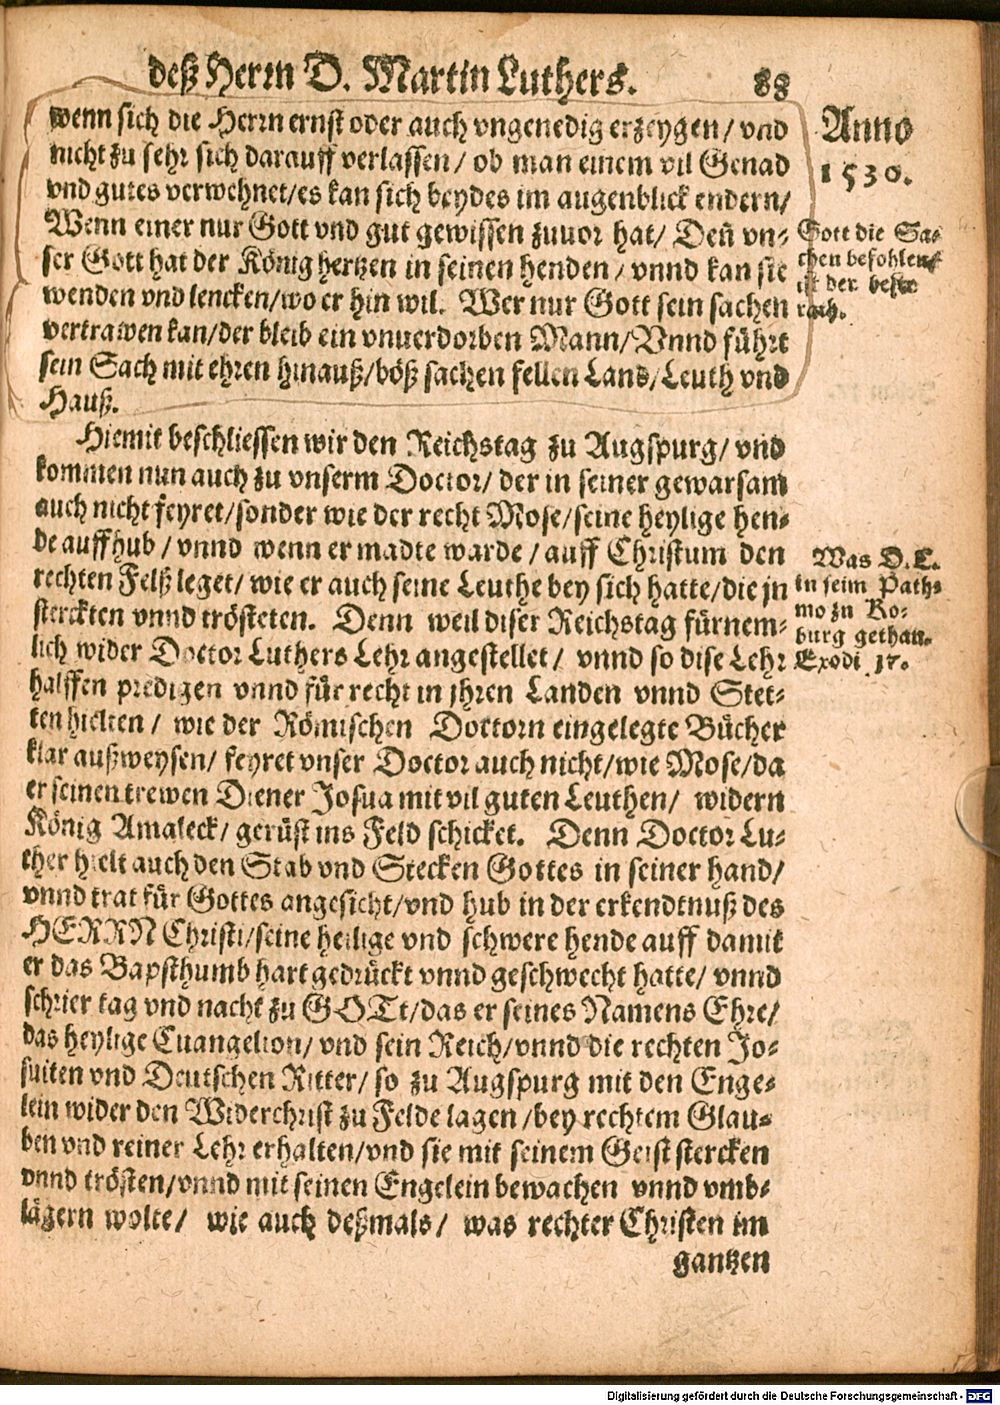 deß Herrn D. Martin Luthers. 88
wenn sich die Herrn ernst oder auch vngenedig erzeygen/ vnd
nicht zu sehr sich darauff verlassen/ ob man einem vil Genad
vnd gutes verwehnet/es kan sich beydes im augenblick endern/
Wenn einer nur Gott vnd gut gewissen zuuor hat/ Deñ vn-
ser Gott hat der König hertzen in seinen henden/ vnnd kan sie
wenden vnd lencken/wo er hin wil. Wer nur Gott sein sachen
vertrawen kan/der bleib ein vnuerdorben Mann/Vnnd führt
sein Sach mit ehren hinauß/böß sachen fellen Land/Leuth vnd
Hauß.
Anno
1530.
Gott die Sa-
chen befohlen/
ist der beste
rath.
Hiemit beschliessen wir den Reichstag zu Augspurg/ vnd
kommen nun auch zu vnserm Doctor/ der in seiner gewarsam
auch nicht feyret/sonder wie der recht Mose/seine heylige hen-
de auffhub/ vnnd wenn er madte warde/ auff Christum den
rechten Felß leget/ wie er auch seine Leuthe bey sich hatte/die jn
sterckten vnnd trösteten. Denn weil diser Reichstag fürnem-
lich wider Doctor Luthers Lehr angestellet/ vnnd so dise Lehr
halffen predigen vnnd für recht in jhren Landen vnnd Stet-
ten hielten/ wie der Römischen Doctorn eingelegte Bücher
klar außweysen/ feyret vnser Doctor auch nicht/wie Mose/da
er seinen trewen Diener Josua mit vil guten Leuthen/ widern
König Amaleck/ gerüst ins Feld schicket. Denn Doctor Lu-
ther hielt auch den Stab vnd Stecken Gottes in seiner hand/
vnnd trat für Gottes angesicht/vnd hub in der erkendtnuß des
HERRN Christi/seine heilige vnd schwere hende auff damit
er das Bapsthumb hart gedrückt vnnd geschwecht hatte/ vnnd
schrier tag vnd nacht zu GOTt/das er seines Namens Ehre/
das heylige Euangelion/ vnd sein Reich/vnnd die rechten Jo-
suiten vnd Deutschen Ritter/ so zu Augspurg mit den Enge-
lein wider den Widerchrist zu Felde lagen/bey rechtem Glau-
ben vnd reiner Lehr erhalten/vnd sie mit seinem Geist stercken
vnnd trösten/vnnd mit seinen Engelein bewachen vnnd vmb-
lägern wolte/ wie auch deßmals/ was rechter Christen im
gantzen
Was D. L.
in seim Path-
mo zu Ko-
burg gethan.
Exodi 17.
Digitalisierung gefördert durch die Deutsche Forschungsgemeinschaft - DFG